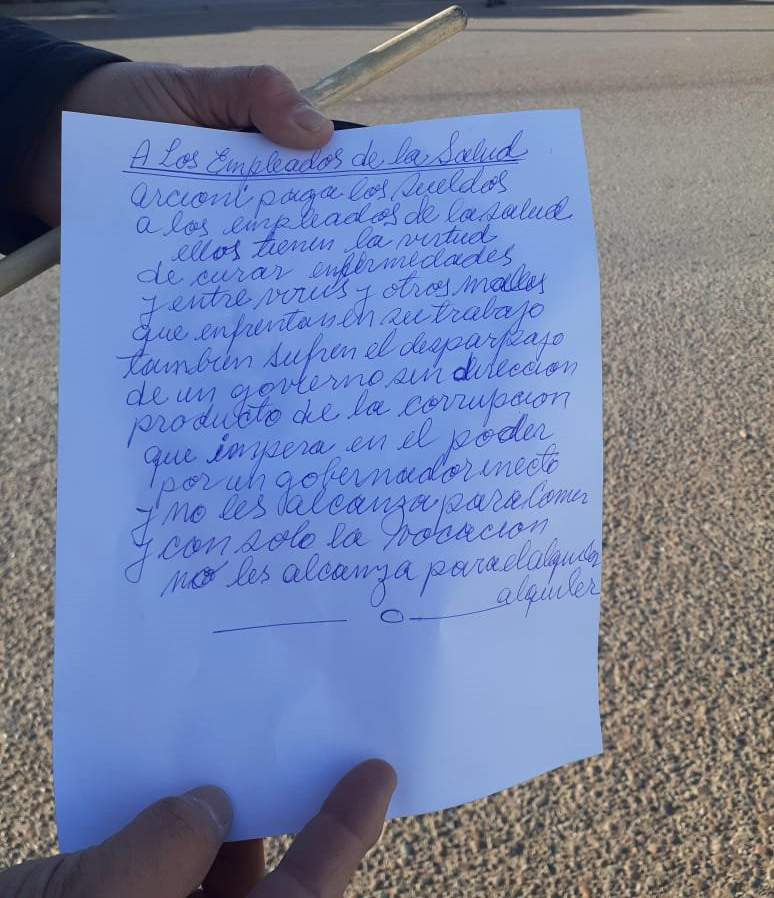 A Los Empleados de la Salud
arcioni paga los sueldos
a los empleados de la salud
ellos tienen la virtud
de curar enfermedades
y entre virus y otros males
que enfrentan en su trabajo
tambien sufren el desparpajo
de un govierno sin direccion
producto de la corrupcion
que impera en el poder
por un gobernador inecto
y no les alcanza para comer
y con solo la vocacion
no les alcanza para el alquiler
alquiler